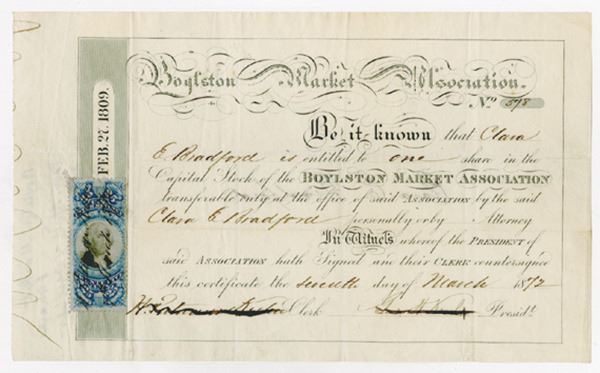 Boylston Market Association.
No. 578
Be it known that Clara
E. Bradford is entitled to one share in the
Capital Stock of the BOYLSTON MARKET ASSOCIATION
transferable only at the office of said ASSOCIATION by the said
Clara E Bradford personally or by Attorney
In Witness whereof the PRESIDENT of
said ASSOCIATION hath Signed and their CLERK countersigned
this certificate the seventh day of March 1872
Clerk Presidt.
FEB. 27. 1809.